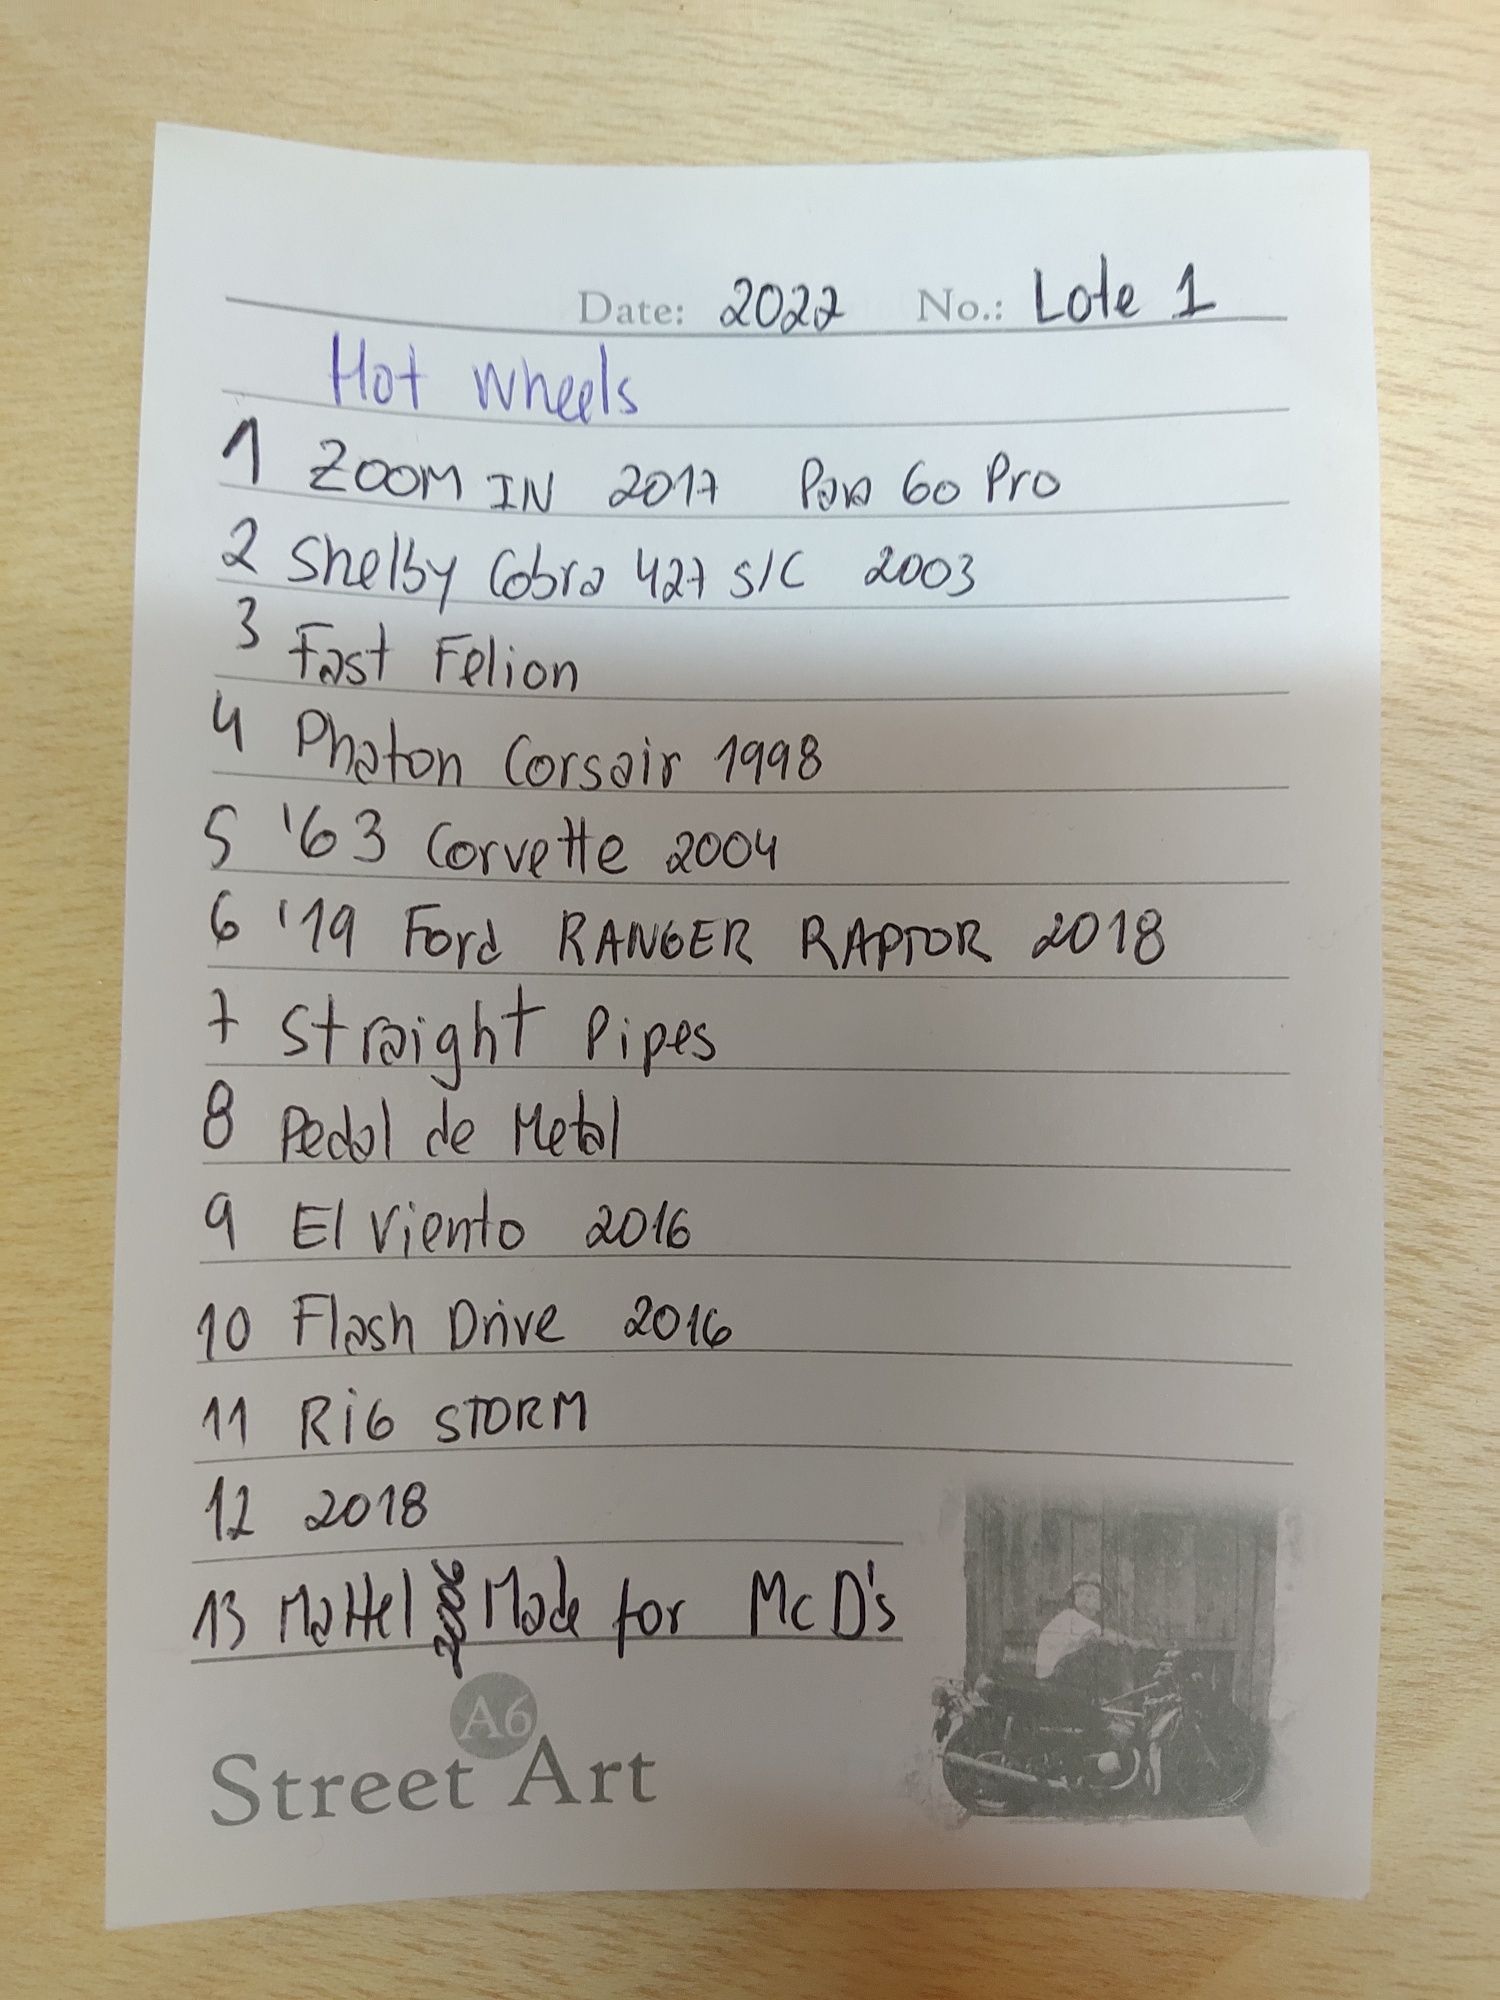 Date: 2022 No.: Lote 1
Hot Wheels
1 ZOOM IN 2017 Para Go Pro
2 Shelby Cobra 427 S/C 2003
3 Fast Felion
4 Phaton Corsair 1998
5 '63 Corvette 2004
6 '19 Ford RANGER RAPTOR 2018
7 Straight Pipes
8 Pedal de Metal
9 El Viento 2016
10 Flash Drive 2016
11 RiG STORM
12 2018
13 Mattel Made for McD's
A6
Street Art